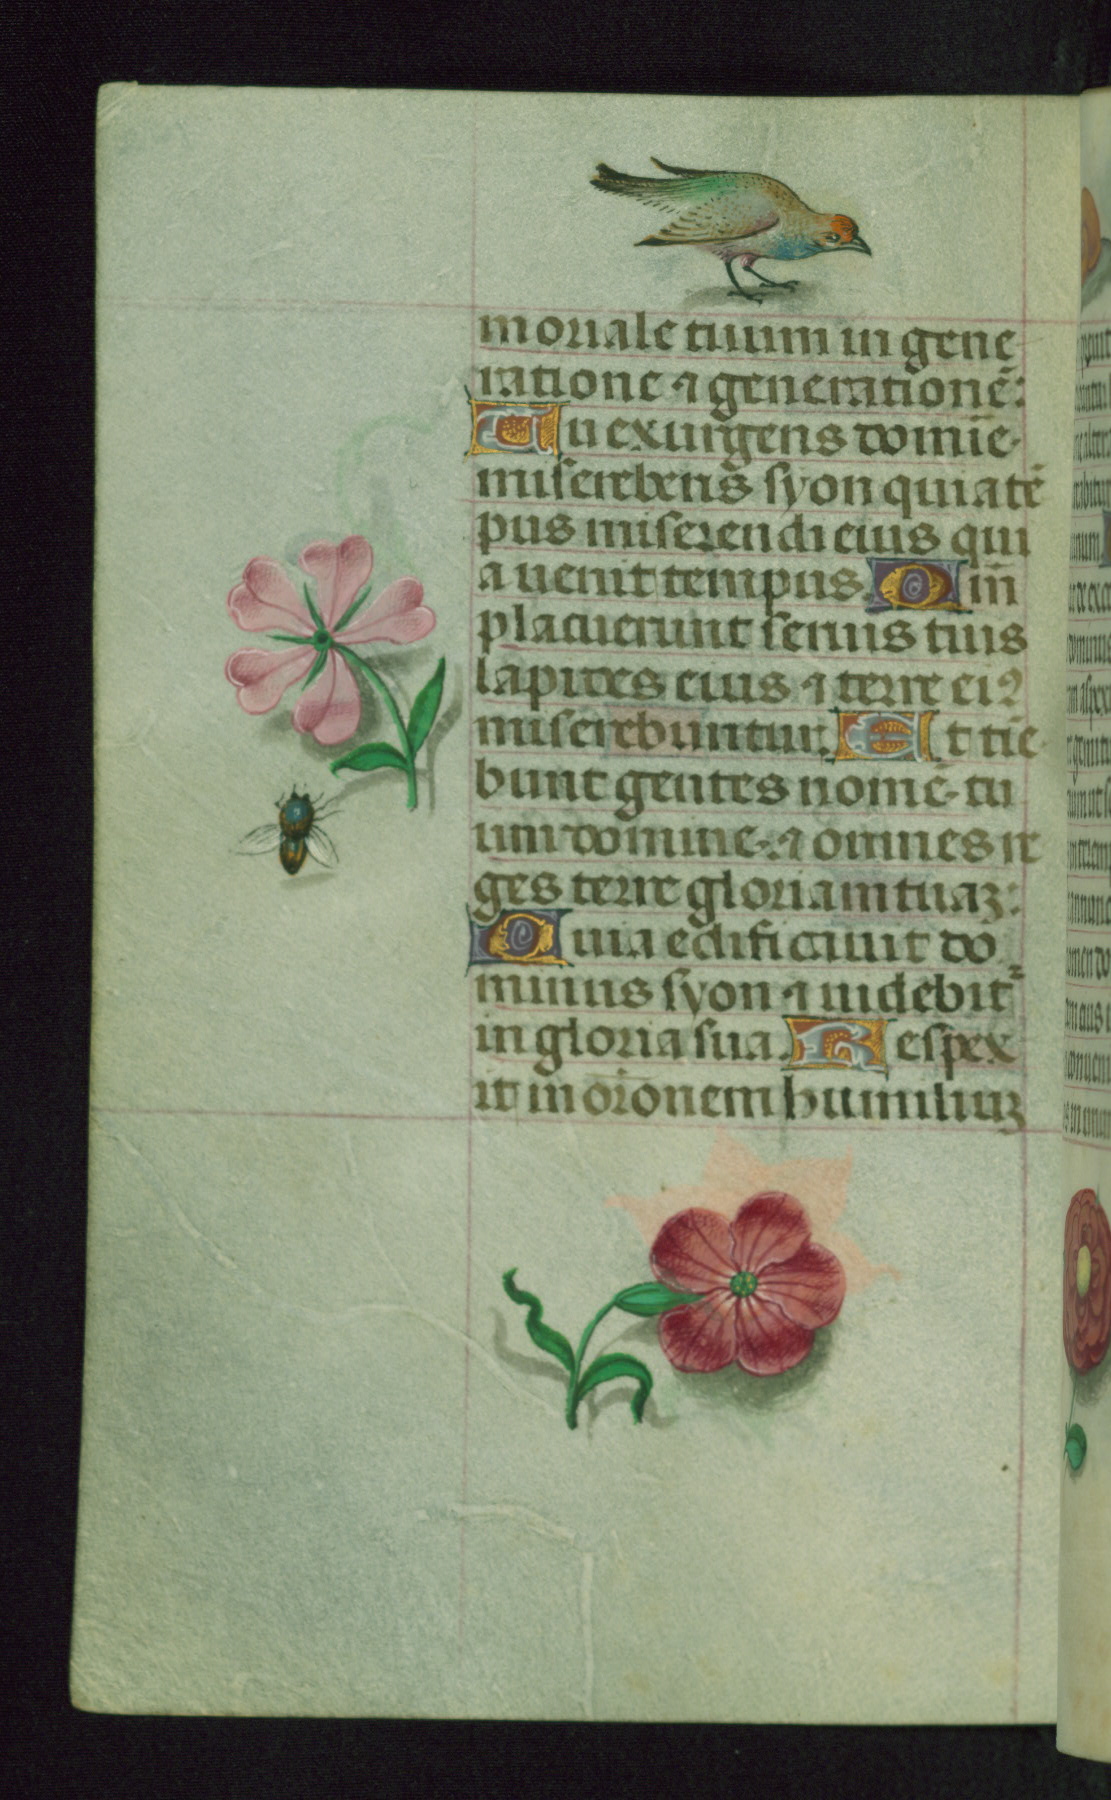 moriale tuum in gene
ratione ⁊ generationē:
Tu exurgens domīe
misereberis syon quia tē
pus miserendi eius qui
a uenit tempus. Qm̄
placuerunt seruis tuis
lapides eius ⁊ terre eiꝰ
miserebuntur: Et tīe
bunt gentes nomē tu
um domine ⁊ omnes re
ges terre gloriam tuaꝫ:
Quia edificauit do
minus syon ⁊ uidebit᷑
in gloria sua. Respex
it in orōnem humiliuꝫ